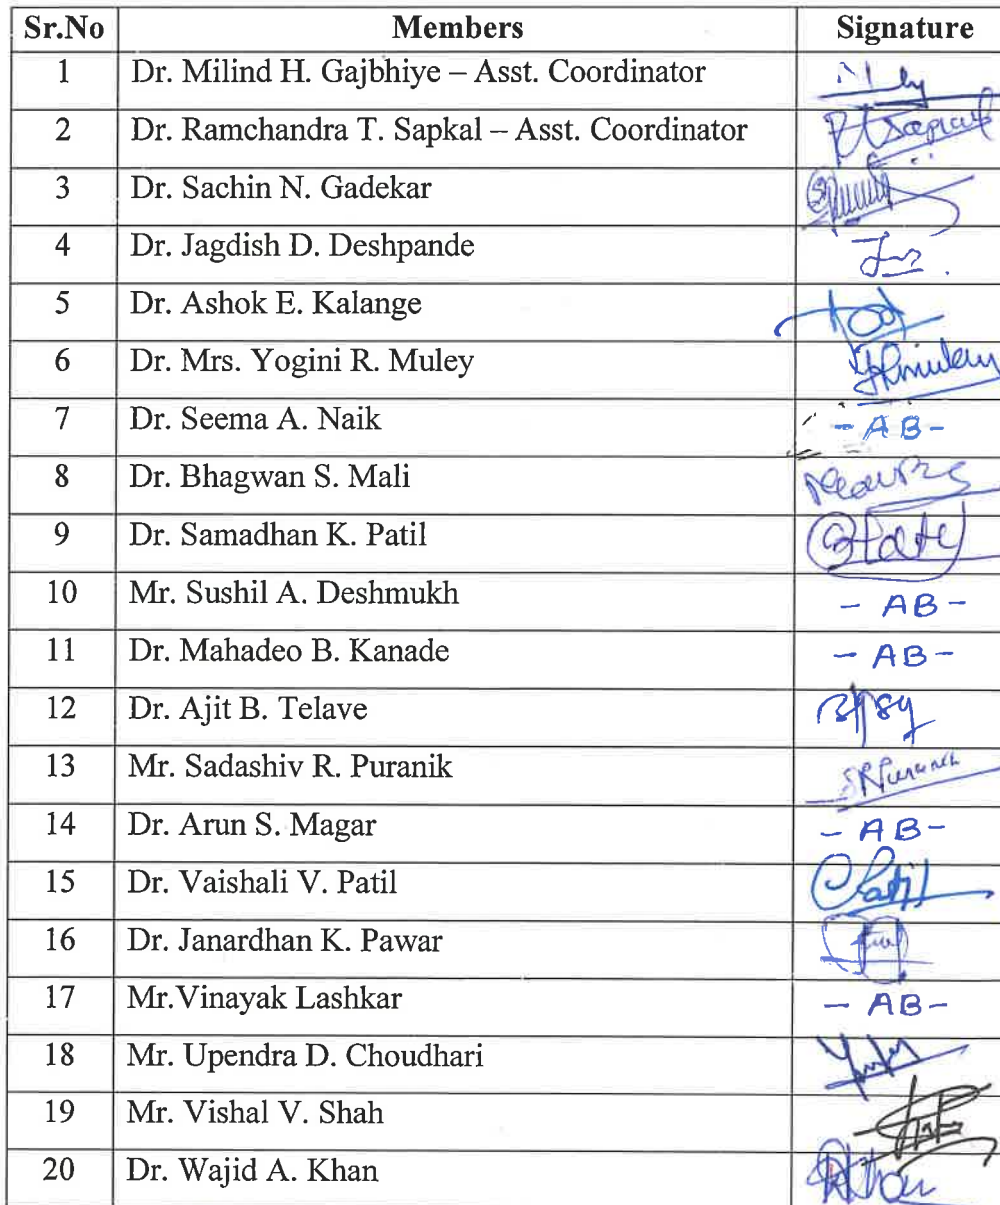 Sr.No Members Signature
1 Dr. Milind H. Gajbhiye – Asst. Coordinator
2 Dr. Ramchandra T. Sapkal – Asst. Coordinator RTSapkal
3 Dr. Sachin N. Gadekar
4 Dr. Jagdish D. Deshpande
5 Dr. Ashok E. Kalange
6 Dr. Mrs. Yogini R. Muley YRmuley
7 Dr. Seema A. Naik - AB -
8 Dr. Bhagwan S. Mali
9 Dr. Samadhan K. Patil
10 Mr. Sushil A. Deshmukh - AB -
11 Dr. Mahadeo B. Kanade - AB -
12 Dr. Ajit B. Telave
13 Mr. Sadashiv R. Puranik SRPuranik
14 Dr. Arun S. Magar - AB -
15 Dr. Vaishali V. Patil
16 Dr. Janardhan K. Pawar
17 Mr.Vinayak Lashkar - AB -
18 Mr. Upendra D. Choudhari
19 Mr. Vishal V. Shah
20 Dr. Wajid A. Khan